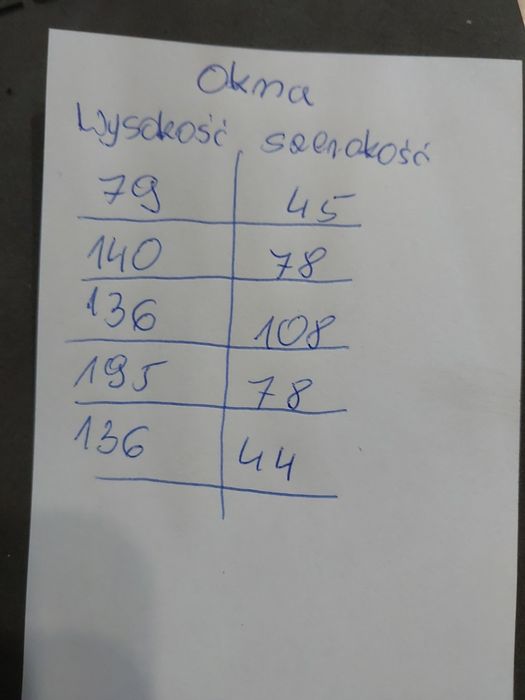 Okna
Wysokość szerokość
79 45
140 78
136 108
195 78
136 44